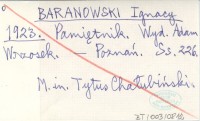 BARANOWSKI Ignacy
1923. Pamiętnik. Wyd. Adam
Wrzosek. — Poznań. Ss. 226.
M. in. Tytus Chałubiński.